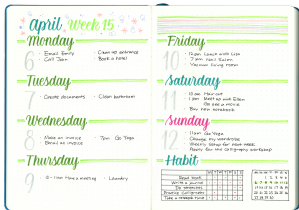 April Week 15
Monday
6
- Email Emily
- Clean up entrance
- Call Jason
- Book a hotel
Tuesday
7
- Create documents
- Clean bathroom
Wednesday
8
- Make an invoice
- 7pm Go Yoga
- Send an invoice
Thursday
9
- Laundry
Friday
10
- 12pm Lunch with Lisa
- 7pm Nail Salon
- Vacuum living room
Saturday
11
- 10am Hair cut
- 1pm Meet up with Ellen
Go see a movie
- Buy new notebook
Sunday
12
- 11am Go Yoga
- Change my Wardrobe
- Weekly Setup for next week
- Ready for the Calligraphy workshop
Habit
M T W T F S S
Read book
Write a journal
Practice Calligraphy